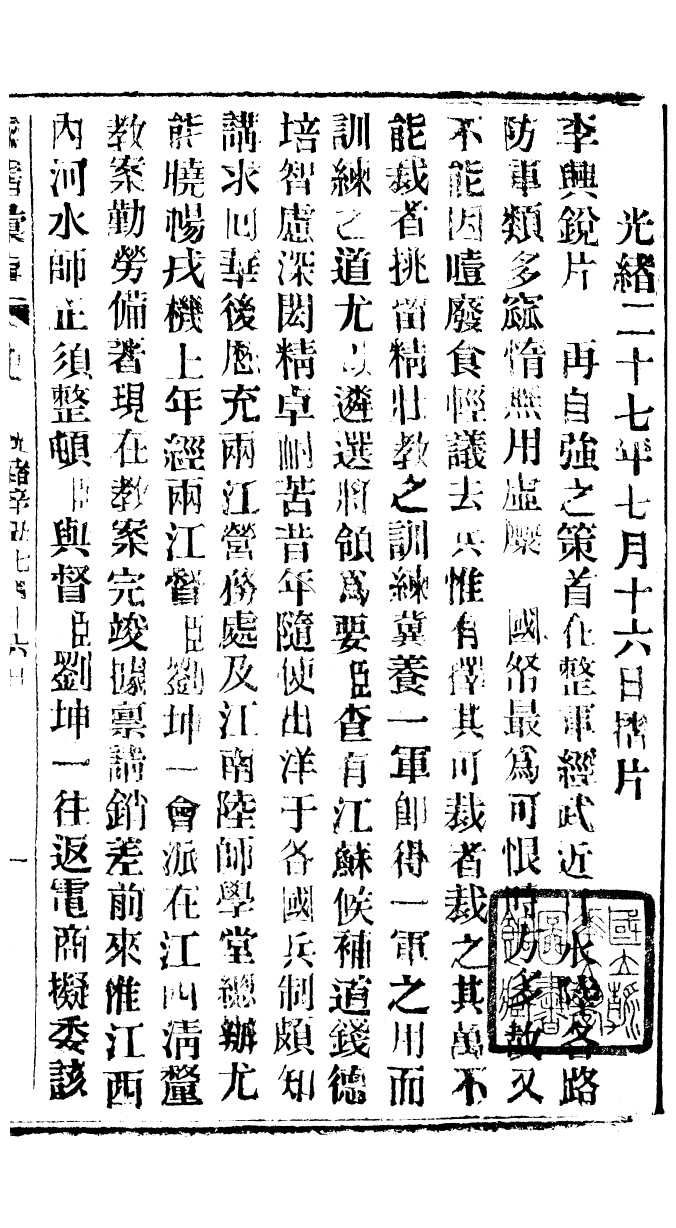 光緒二十七年七月十六日摺片
李興銳片　再自強之策首在整軍經武近日水陸各路
防軍類多窳惰無用虛縻　國帑最為可恨時方多故又
不能因噎廢食輕議去兵惟有擇其可裁者裁之其萬不
能裁者挑留精壯教之訓練冀養一軍卽得一軍之用而
訓練之道尤以遴選將領爲要臣查有江蘇候補道錢德
培智慮深閎精卓耐苦昔年隨使出洋于各國兵制頗知
講求回華後歷充兩江營務處及江南陸師學堂總辦尤
能曉暢戎機上年經兩江督臣劉坤一會派在江西清釐
教案勤勞備著現在教案完竣據稟請銷差前來惟江西
內河水師正須整頓臣與督臣劉坤一往返電商擬委該
光緒辛丑七月十六日
一